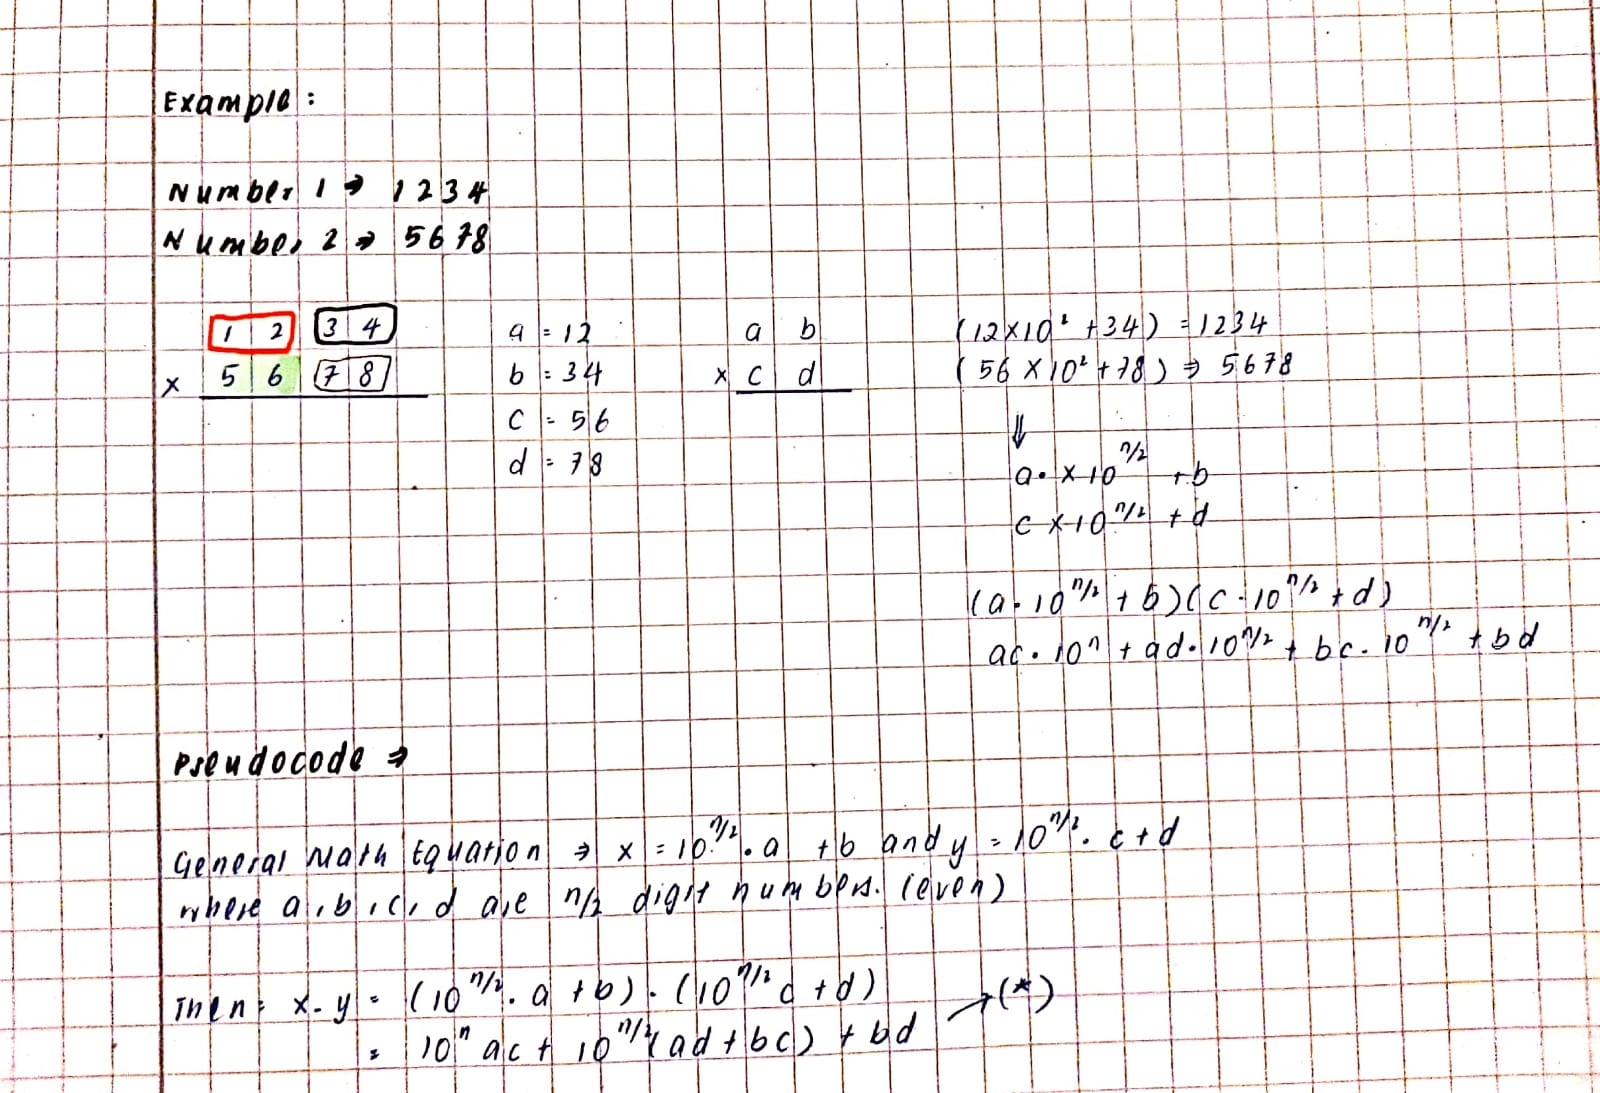 Example :
Number 1 ⇒ 1234
Number 2 ⇒ 5678
1 2 3 4
x 5 6 7 8
a = 12
b = 34
c = 56
d = 78
a b
x c d
(12×10² +34) = 1234
(56 × 10² + 78) ⇒ 5678
⇓
a. × 10^n/2 + b
c × 10^n/2 + d
(a . 10^n/2 + b)(c . 10^n/2 + d)
ac . 10^n + ad . 10^n/2 + bc . 10^n/2 + bd
Pseudocode ⇒
General Math Equation ⇒ x = 10^n/2 . a + b and y = 10^n/2 . c + d
where a, b, c, d are n/2 digit numbers. (even)
Then : x . y = (10^n/2 . a + b) . (10^n/2 c + d)
= 10^n ac + 10^n/2 (ad + bc) + bd → (*)